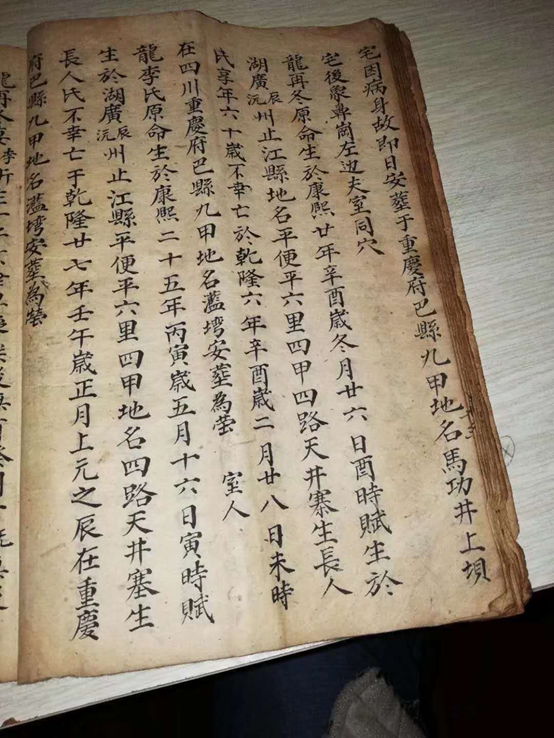 宅因病身故即日安葬于重慶府巴縣九甲地名馬功井上垻
宅後象鼻崗左边夫室同穴
龍再冬原命生於康熙廿年辛酉歲冬月廿六日酉時賦生於
湖廣辰沅州止江縣地名平便平六里四甲四路天井寨生長人
氏享年六十歲不幸亡於乾隆六年辛酉歲二月廿八日未時
在四川重慶府巴縣九甲地名濫塆安葬為塋 室人
龍李氏原命生於康熙二十五年丙寅歲五月十六日寅時賦
生於湖廣辰沅州止江縣平便平六里四甲地名四路天井寨生
長人氏不幸亡于乾隆廿七年壬午歲正月上元之辰在重慶
府巴縣九甲地名濫塆安葬為塋
龍再冬妻李